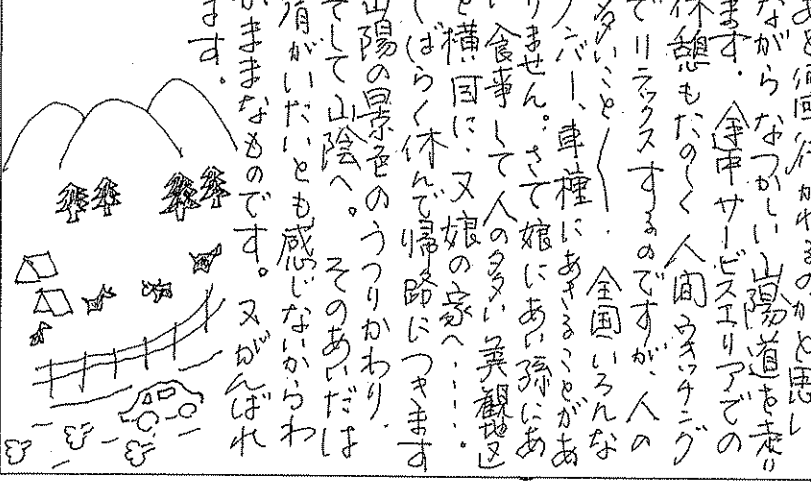 あと何回分かれるのかと思い
ながらなつかしい山陽道を走り
ます。途中サービスエリアでの
休憩もたのしく人間ウオッチング
でリラックスするのですが、人の
多いこと〱。全国いろんな
ナンバー、車種にあきることがあ
りません。さて娘にあい孫にあ
い食事して人の多い美観地区
を横目に、又娘の家へ……。
しばらく休んで帰路につきます
山陽の景色のうつりかわり、
そして山陰へ。そのあいだは
肩がいたいとも感じないからわ
がままなものです。又がんばれ
ます。